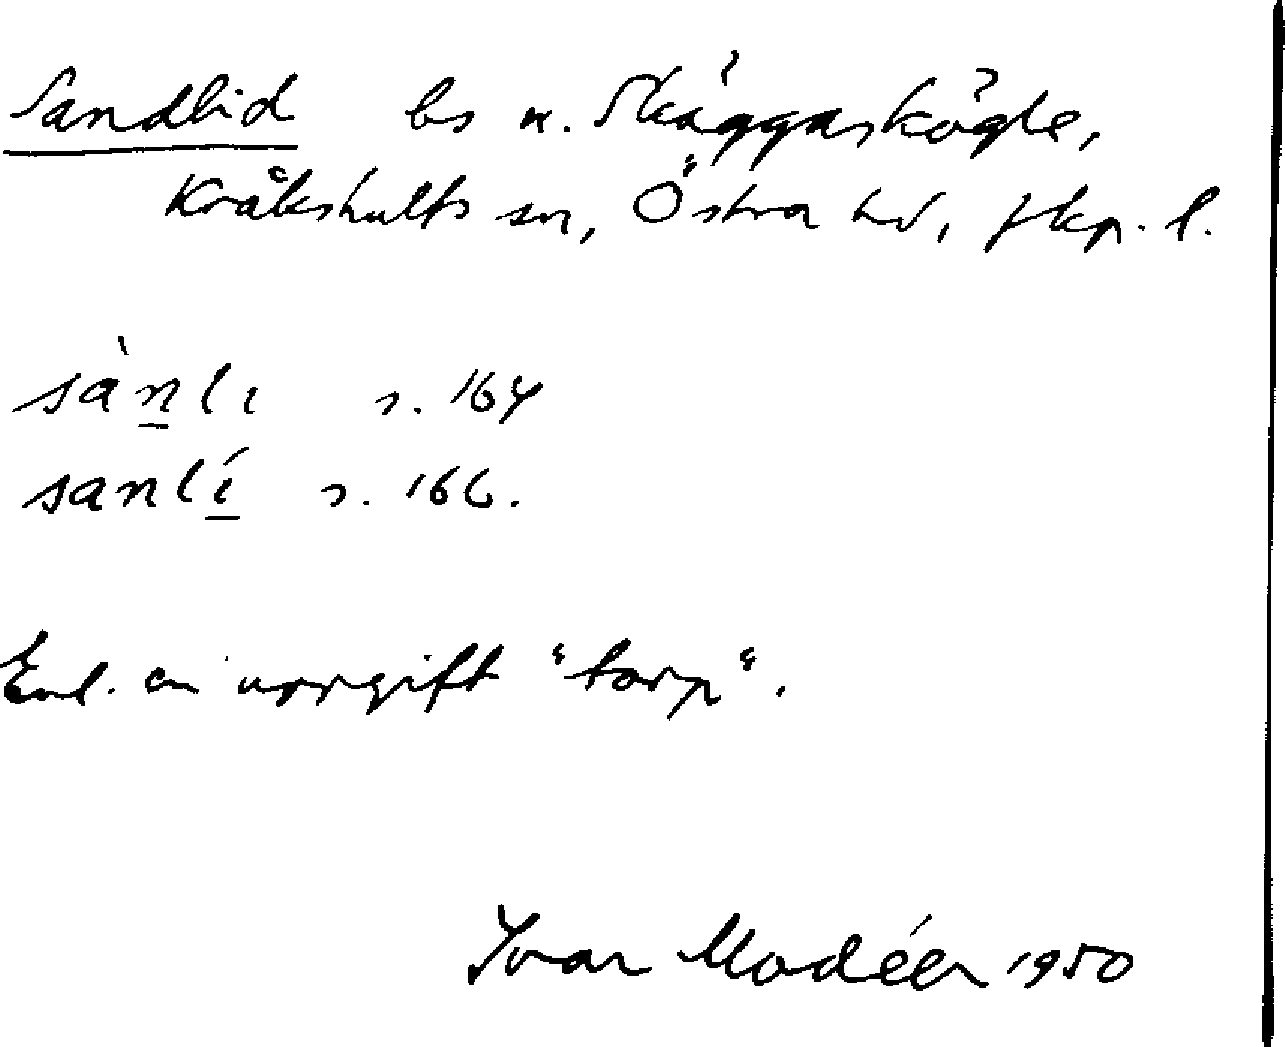 Sandlid bs u. Skäggaskögle,
Kråkshults sn, Östra hd, Jkp. l.
sànlı s. 164
sanlí s. 166.
Enl. en uppgift "torp".
Ivar Modéer 1950